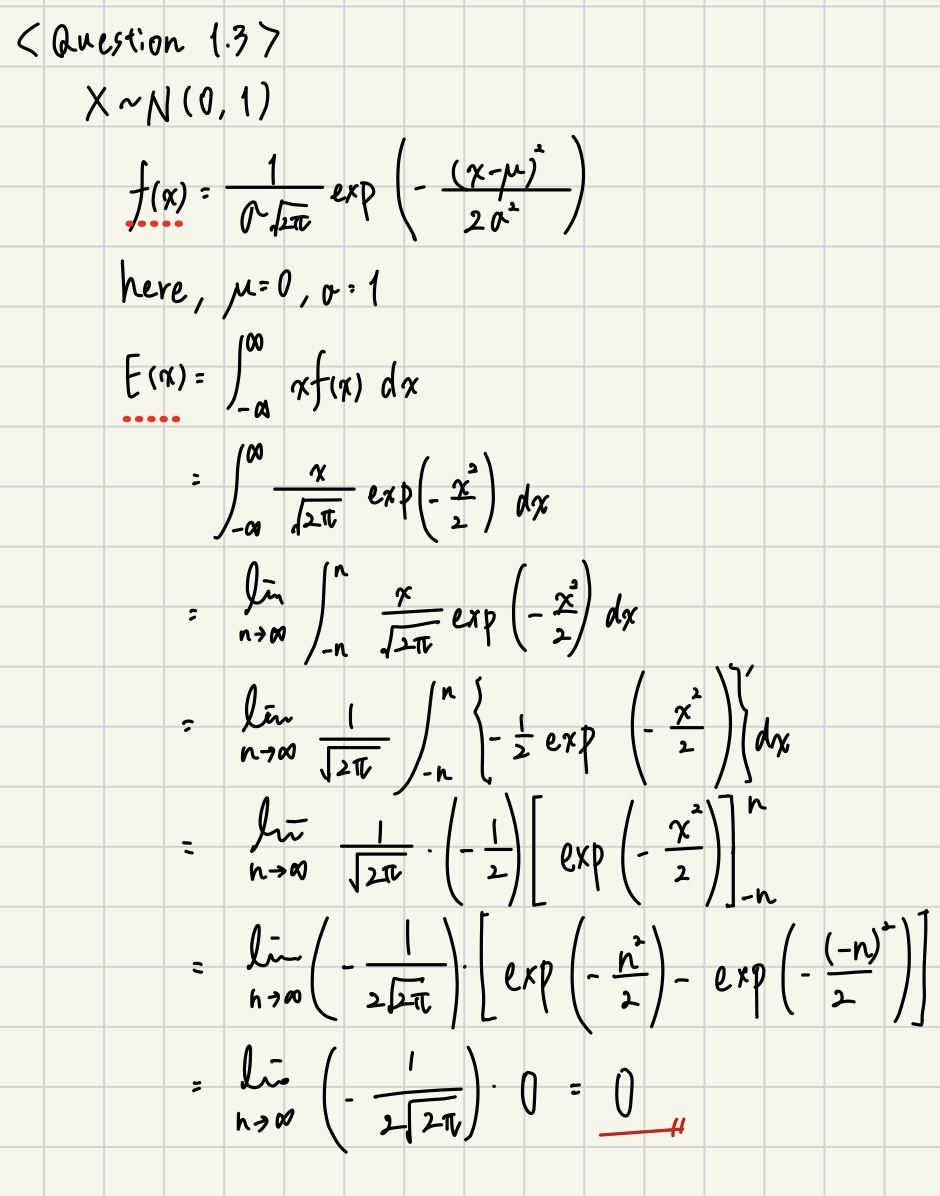 < Question 1.3 >
X ~ N(0, 1)
f(x) = \frac{1}{σ\sqrt{2π}} exp \left( - \frac{(x-μ)^2}{2σ^2} \right)
here, μ=0, σ=1
E(x) = \int_{-∞}^{∞} x f(x) dx
= \int_{-∞}^{∞} \frac{x}{\sqrt{2π}} exp \left( - \frac{x^2}{2} \right) dx
= \lim_{n→∞} \int_{-n}^{n} \frac{x}{\sqrt{2π}} exp \left( - \frac{x^2}{2} \right) dx
= \lim_{n→∞} \frac{1}{\sqrt{2π}} \int_{-n}^{n} \left\{ - \frac{1}{2} exp \left( - \frac{x^2}{2} \right) \right\}' dx
= \lim_{n→∞} \frac{1}{\sqrt{2π}} · \left( - \frac{1}{2} \right) \left[ exp \left( - \frac{x^2}{2} \right) \right]_{-n}^{n}
= \lim_{n→∞} \left( - \frac{1}{2\sqrt{2π}} \right) · \left[ exp \left( - \frac{n^2}{2} \right) - exp \left( - \frac{(-n)^2}{2} \right) \right]
= \lim_{n→∞} \left( - \frac{1}{2\sqrt{2π}} \right) · 0 = 0